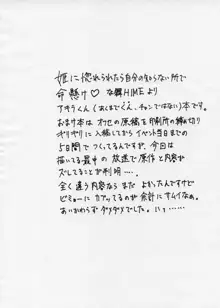 姫に惚れられたら自分の知らない所で
命懸け♡ な舞HIMEより
アキラくん(あくまでくん、チャンではない)本です。
おまけ本は オフセの原稿を印刷所の締め切り
ギリギリに入稿してからイベント当日までの
5日間でつくってるんですが、今回は
描いてる最中の放送で原作と内容が
ズレてることが判明……。
全く違う内容なら まだ よかったんですけど
ビミョーに カブってるのが 余計に サムイなぁ。
あいかわらず ダメダメでした。